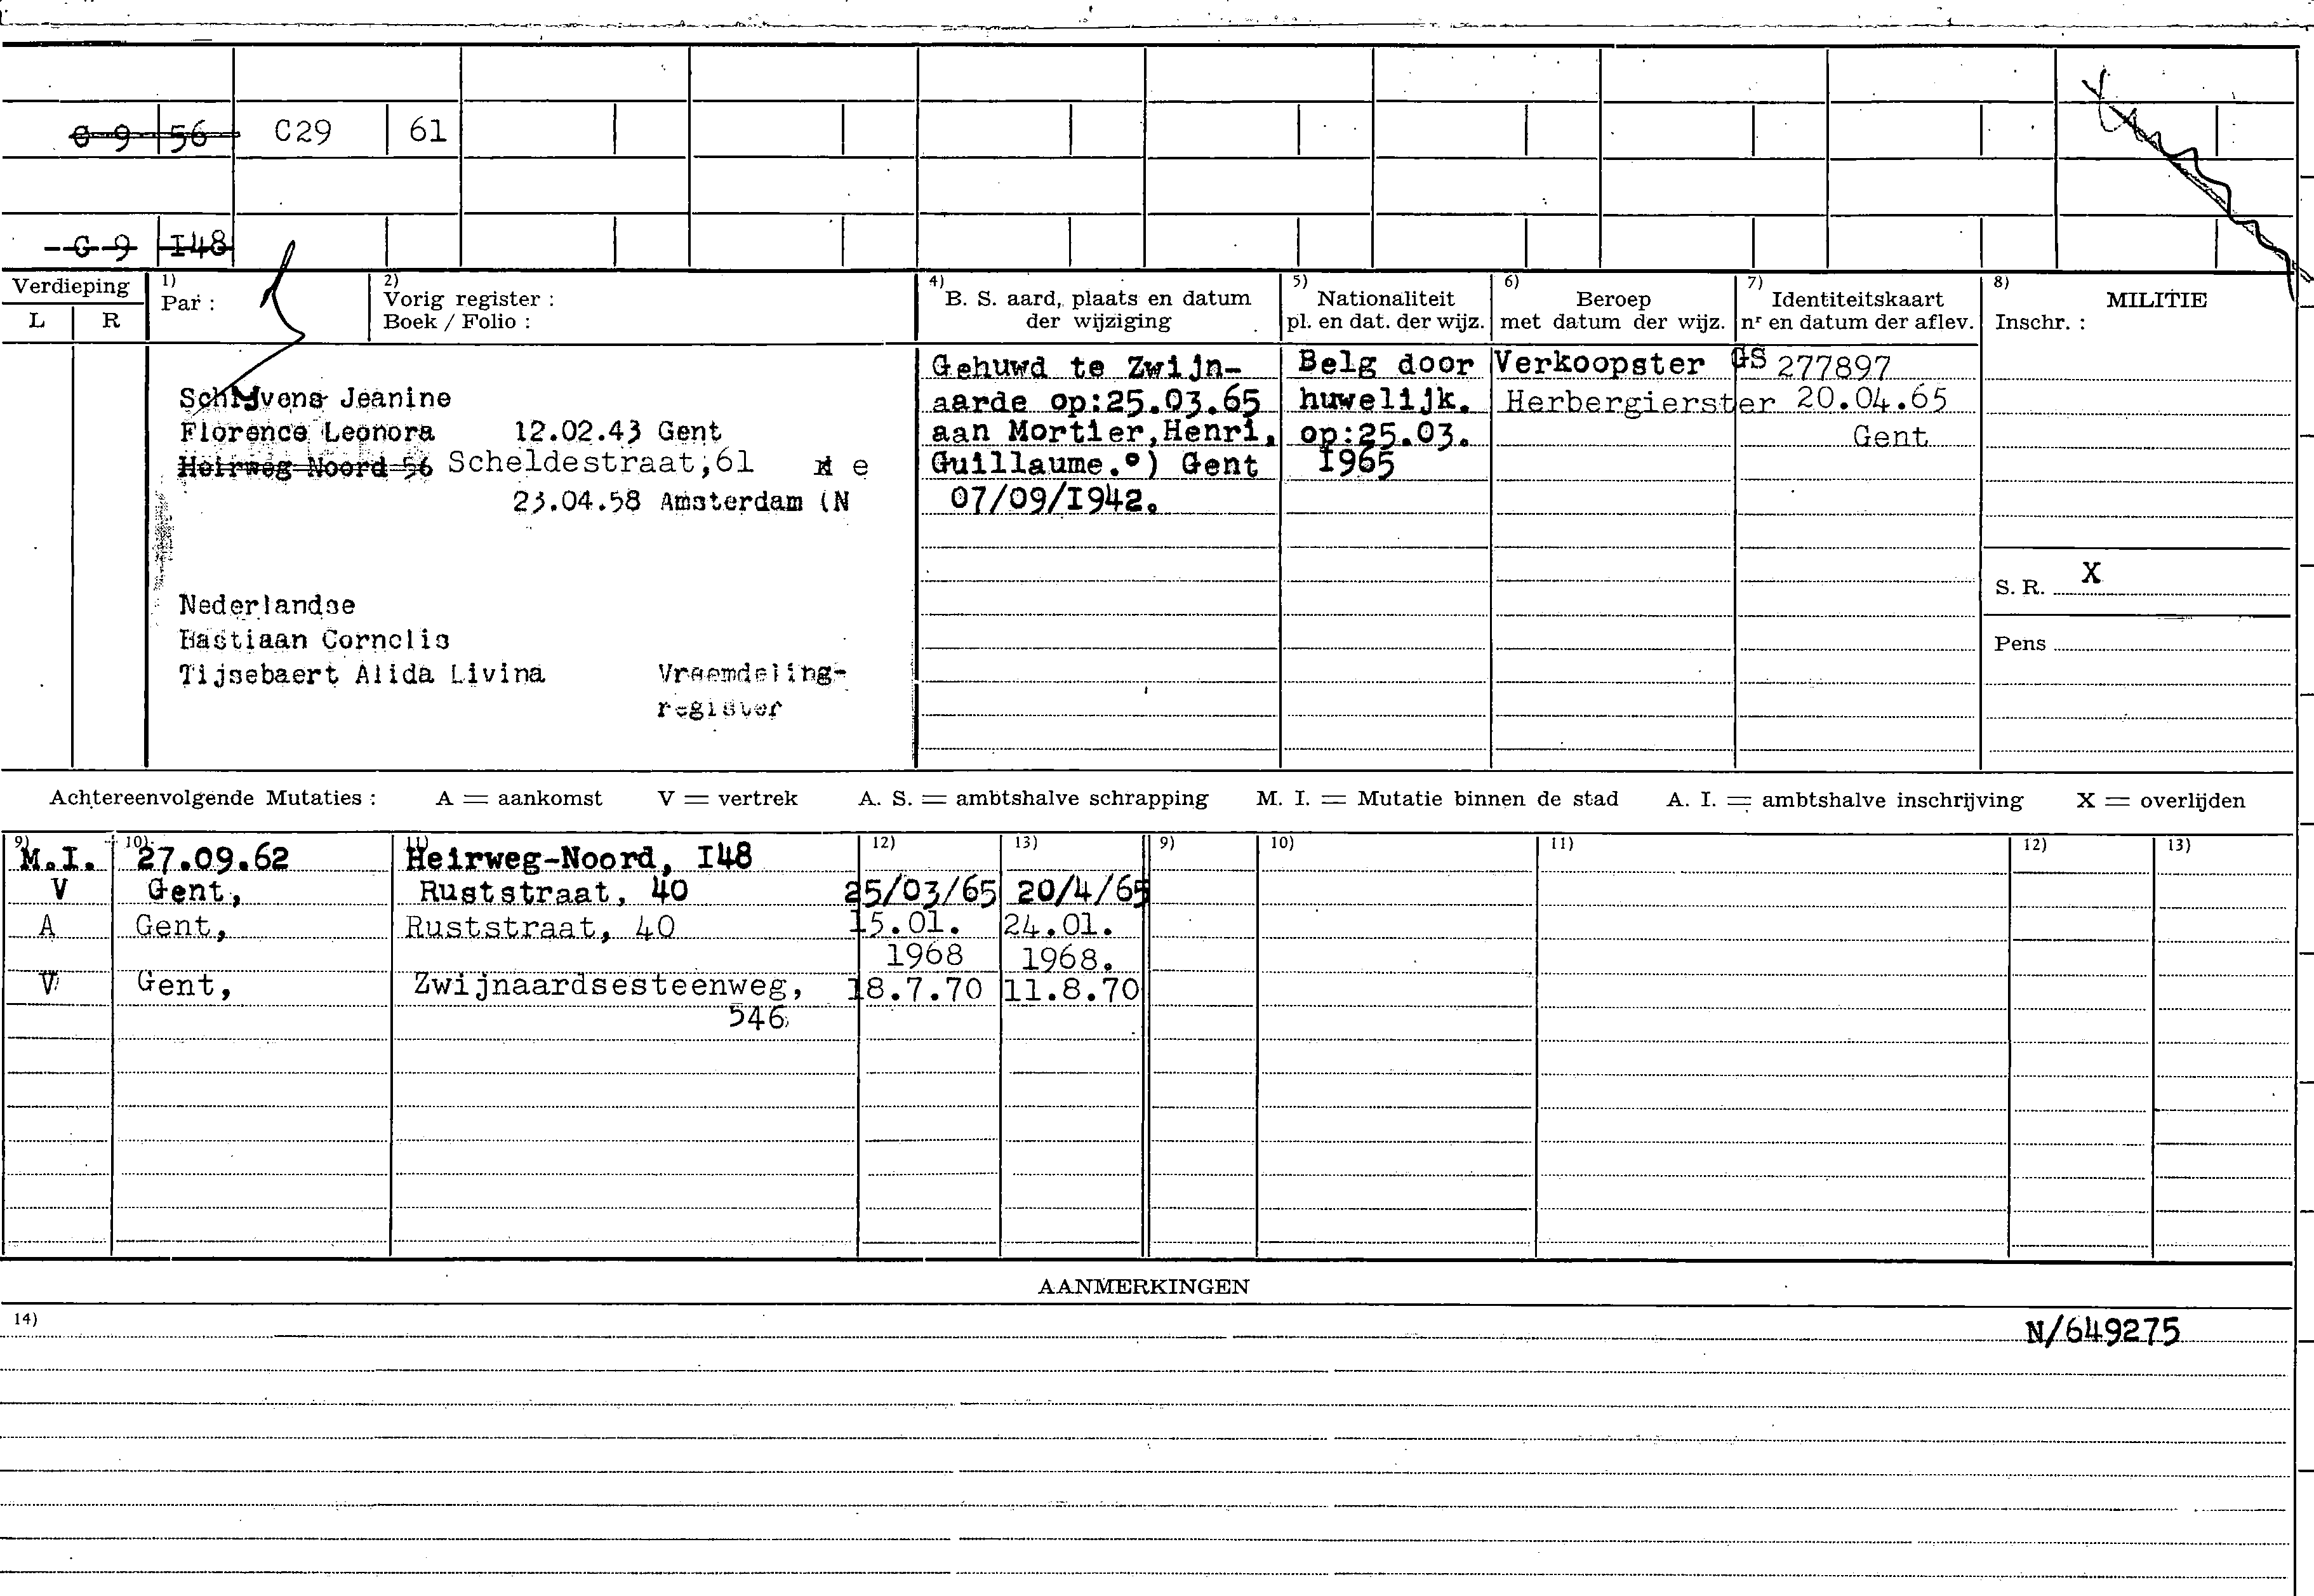 C 9 56 C29 61
G 9 I48
Verdieping
L R
1) Par :
2) Vorig register :
Boek / Folio :
4) B. S. aard, plaats en datum
der wijziging
5) Nationaliteit
pl. en dat. der wijz.
6) Beroep
met datum der wijz.
7) Identiteitskaart
nr en datum der aflev.
8) MILITIE
Inschr. :
Jeanine
Florence Leonora 12.02.43 Gent
Heirweg Noord 56 Scheldestraat,61 e
23.04.58 Amsterdam (N
Nederlandse
Bastiaan Cornelis
Tijsebaert Alida Livina Vreemdeling-
register
Gehuwd te Zwijn-
aarde op:25.03.65
aan Mortier,Henri,
Guillaume.°) Gent
07/09/I942.
Belg door
huwelijk.
op:25.03.
I965
Verkoopster
Herbergierster
GS 277897
20.04.65
Gent
S. R. X
Pens
Achtereenvolgende Mutaties : A = aankomst V = vertrek A. S. = ambtshalve schrapping M. I. = Mutatie binnen de stad A. I. = ambtshalve inschrijving X = overlijden
9) 10) 11) 12) 13) 9) 10) 11) 12) 13)
M.I. 27.09.62 Heirweg-Noord, I48
V Gent, Ruststraat, 40 25/03/65 20/4/65
A Gent, Ruststraat, 40 15.01. 24.01.
1968 1968.
V Gent, Zwijnaardsesteenweg, 18.7.70 11.8.70
546
AANMERKINGEN
14)
N/649275